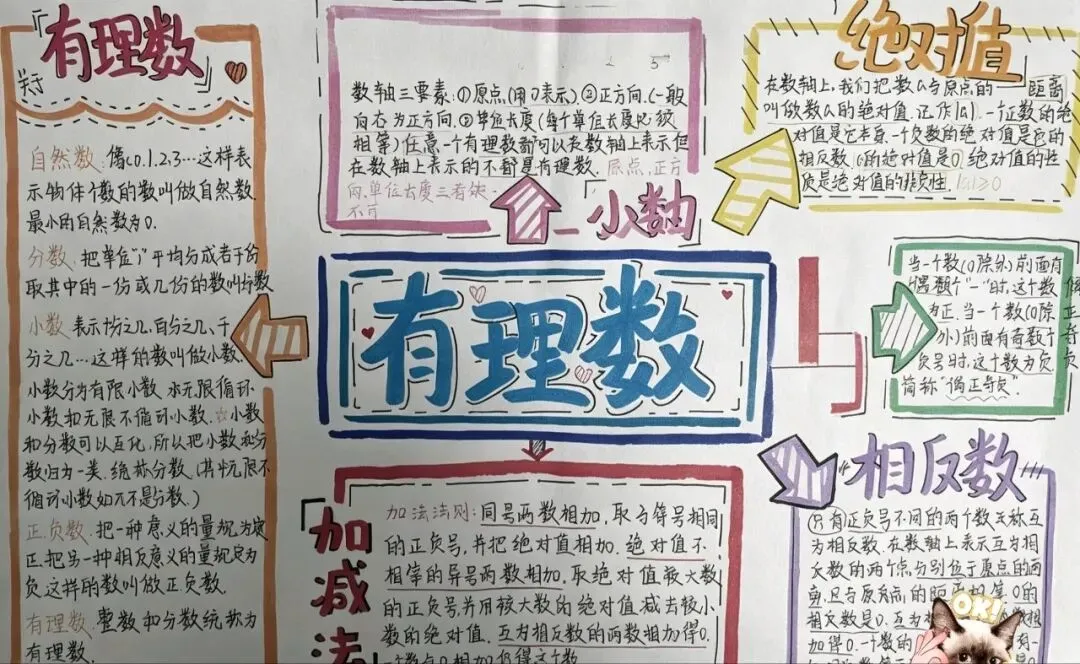 关于
有理数
自然数:像0.1.2.3…这样表
示物体个数的数叫做自然数.
最小的自然数为0.
分数.把单位"1"平均分成若干份
取其中的一份或几份的数叫分数
小数.表示十分之几、百分之几、千
分之几…这样的数叫做小数.
小数分为有限小数.无限循环
小数和无限不循环小数.小数
和分数可以互化,所以把小数和分
数归为一类.统称分数.(其中无限不
循环小数如π不是分数.)
正负数.把一种意义的量规为
正.把另一种相反意义的量规定为
负.这样的数叫做正负数.
有理数.整数和分数统称为
有理数.
数轴三要素:①原点(用0表示)②正方向.(一般
向右为正方向.③单位长度(每个单位长度必须
相等)任意一个有理数都可以在数轴上表示但
在数轴上表示的不都是有理数.原点,正方
向,单位长度三者缺一
不可
小数轴
绝对值
在数轴上,我们把数a与原点的距离
叫做数a的绝对值.记作|a|.一个正数的绝
对值是它本身.一个负数的绝对值是它的
相反数.0的绝对值是0.绝对值的性
质是绝对值的非负性.|a|≥0
有理数
当一个数(0除外)前面有
偶数个"-"时,这个数
为正.当一个数(0除
外)前面有奇数个
负号时,这个数为负
简称"偶正奇负"
偶正奇负
加减法
加法法则:同号两数相加,取与符号相同
的正负号,并把绝对值相加.绝对值不
相等的异号两数相加,取绝对值较大数
的正负号并用较大数的绝对值减去较小
数的绝对值.互为相反数的两数相加得0.
一个数与0相加仍得这个数
相反数
只有正负号不同的两个数互称互
为相反数.在数轴上表示互为相
反数的两个点分别位于原点的两
侧.且与原点的距离相等.0的
相反数是0.互为
加得0.一个数的
OK!